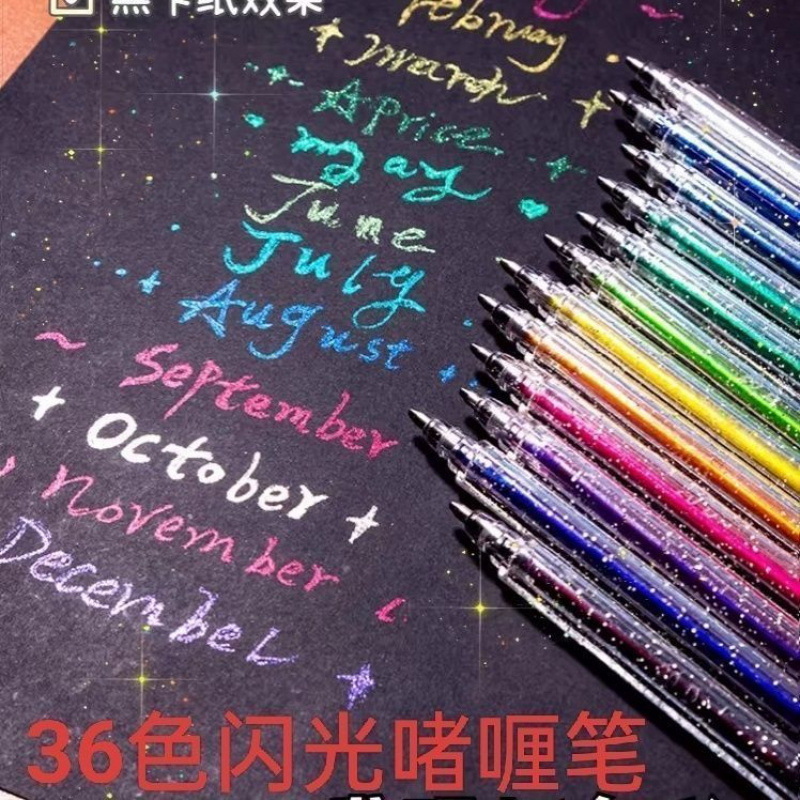 黑卡纸效果
February
march
Aprice
may
June
July
August
September
October
November
December
36色闪光啫喱笔